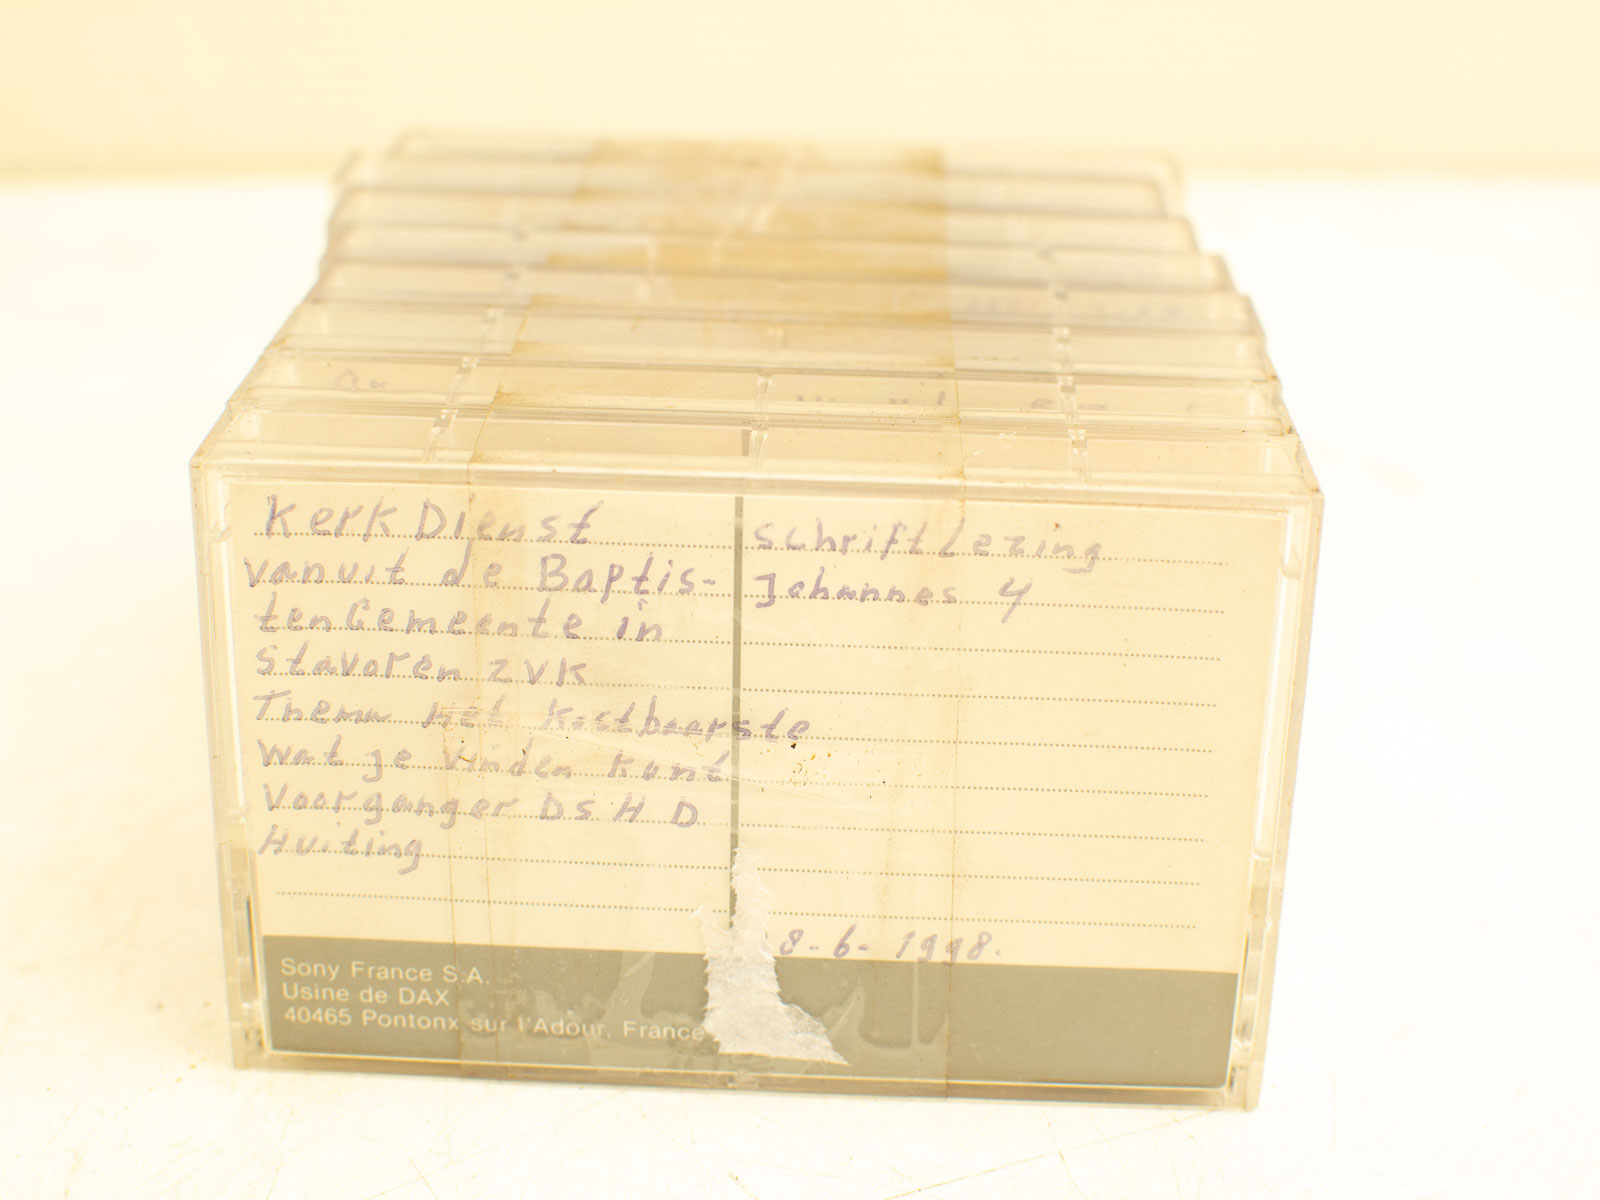 KerkDienst
vanuit de Baptis-
tenGemeente in
Stavoren ZVK
Thema Het Kostbaarste
wat je vinden kunt
Voorganger Ds H D
Huiting
SchriftLezing
Johannes 4
8-6-1998.
Sony France S.A.
Usine de DAX
40465 Pontonx sur l'Adour, France